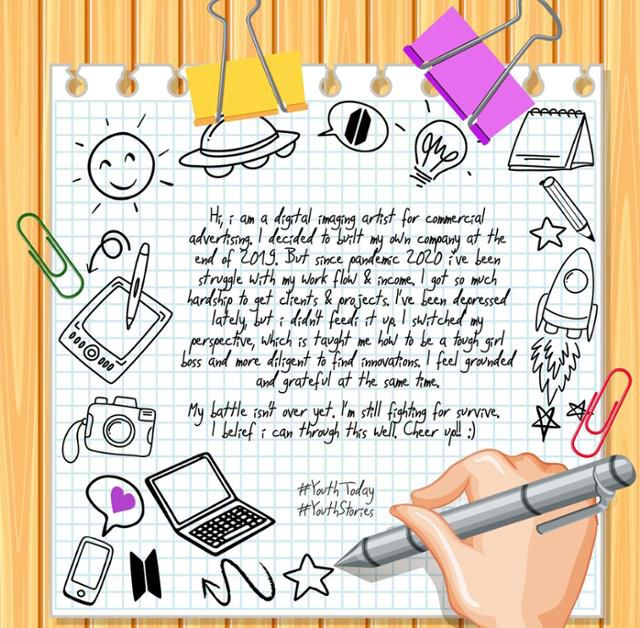 Hi, i am a digital imaging artist for commercial
advertising. I decided to built my own company at the
end of 2019. But since pandemic 2020 i've been
struggle with my work flow & income. I got so much
hardship to get clients & projects. I've been depressed
lately, but i didn't feedi it up. I switched my
perspective, which is taught me how to be a tough girl
boss and more diligent to find innovations. I feel grounded
and grateful at the same time.
My battle isn't over yet. I'm still fighting for survive.
I belief i can through this well. Cheer up!! :)
#YouthToday
#YouthStories